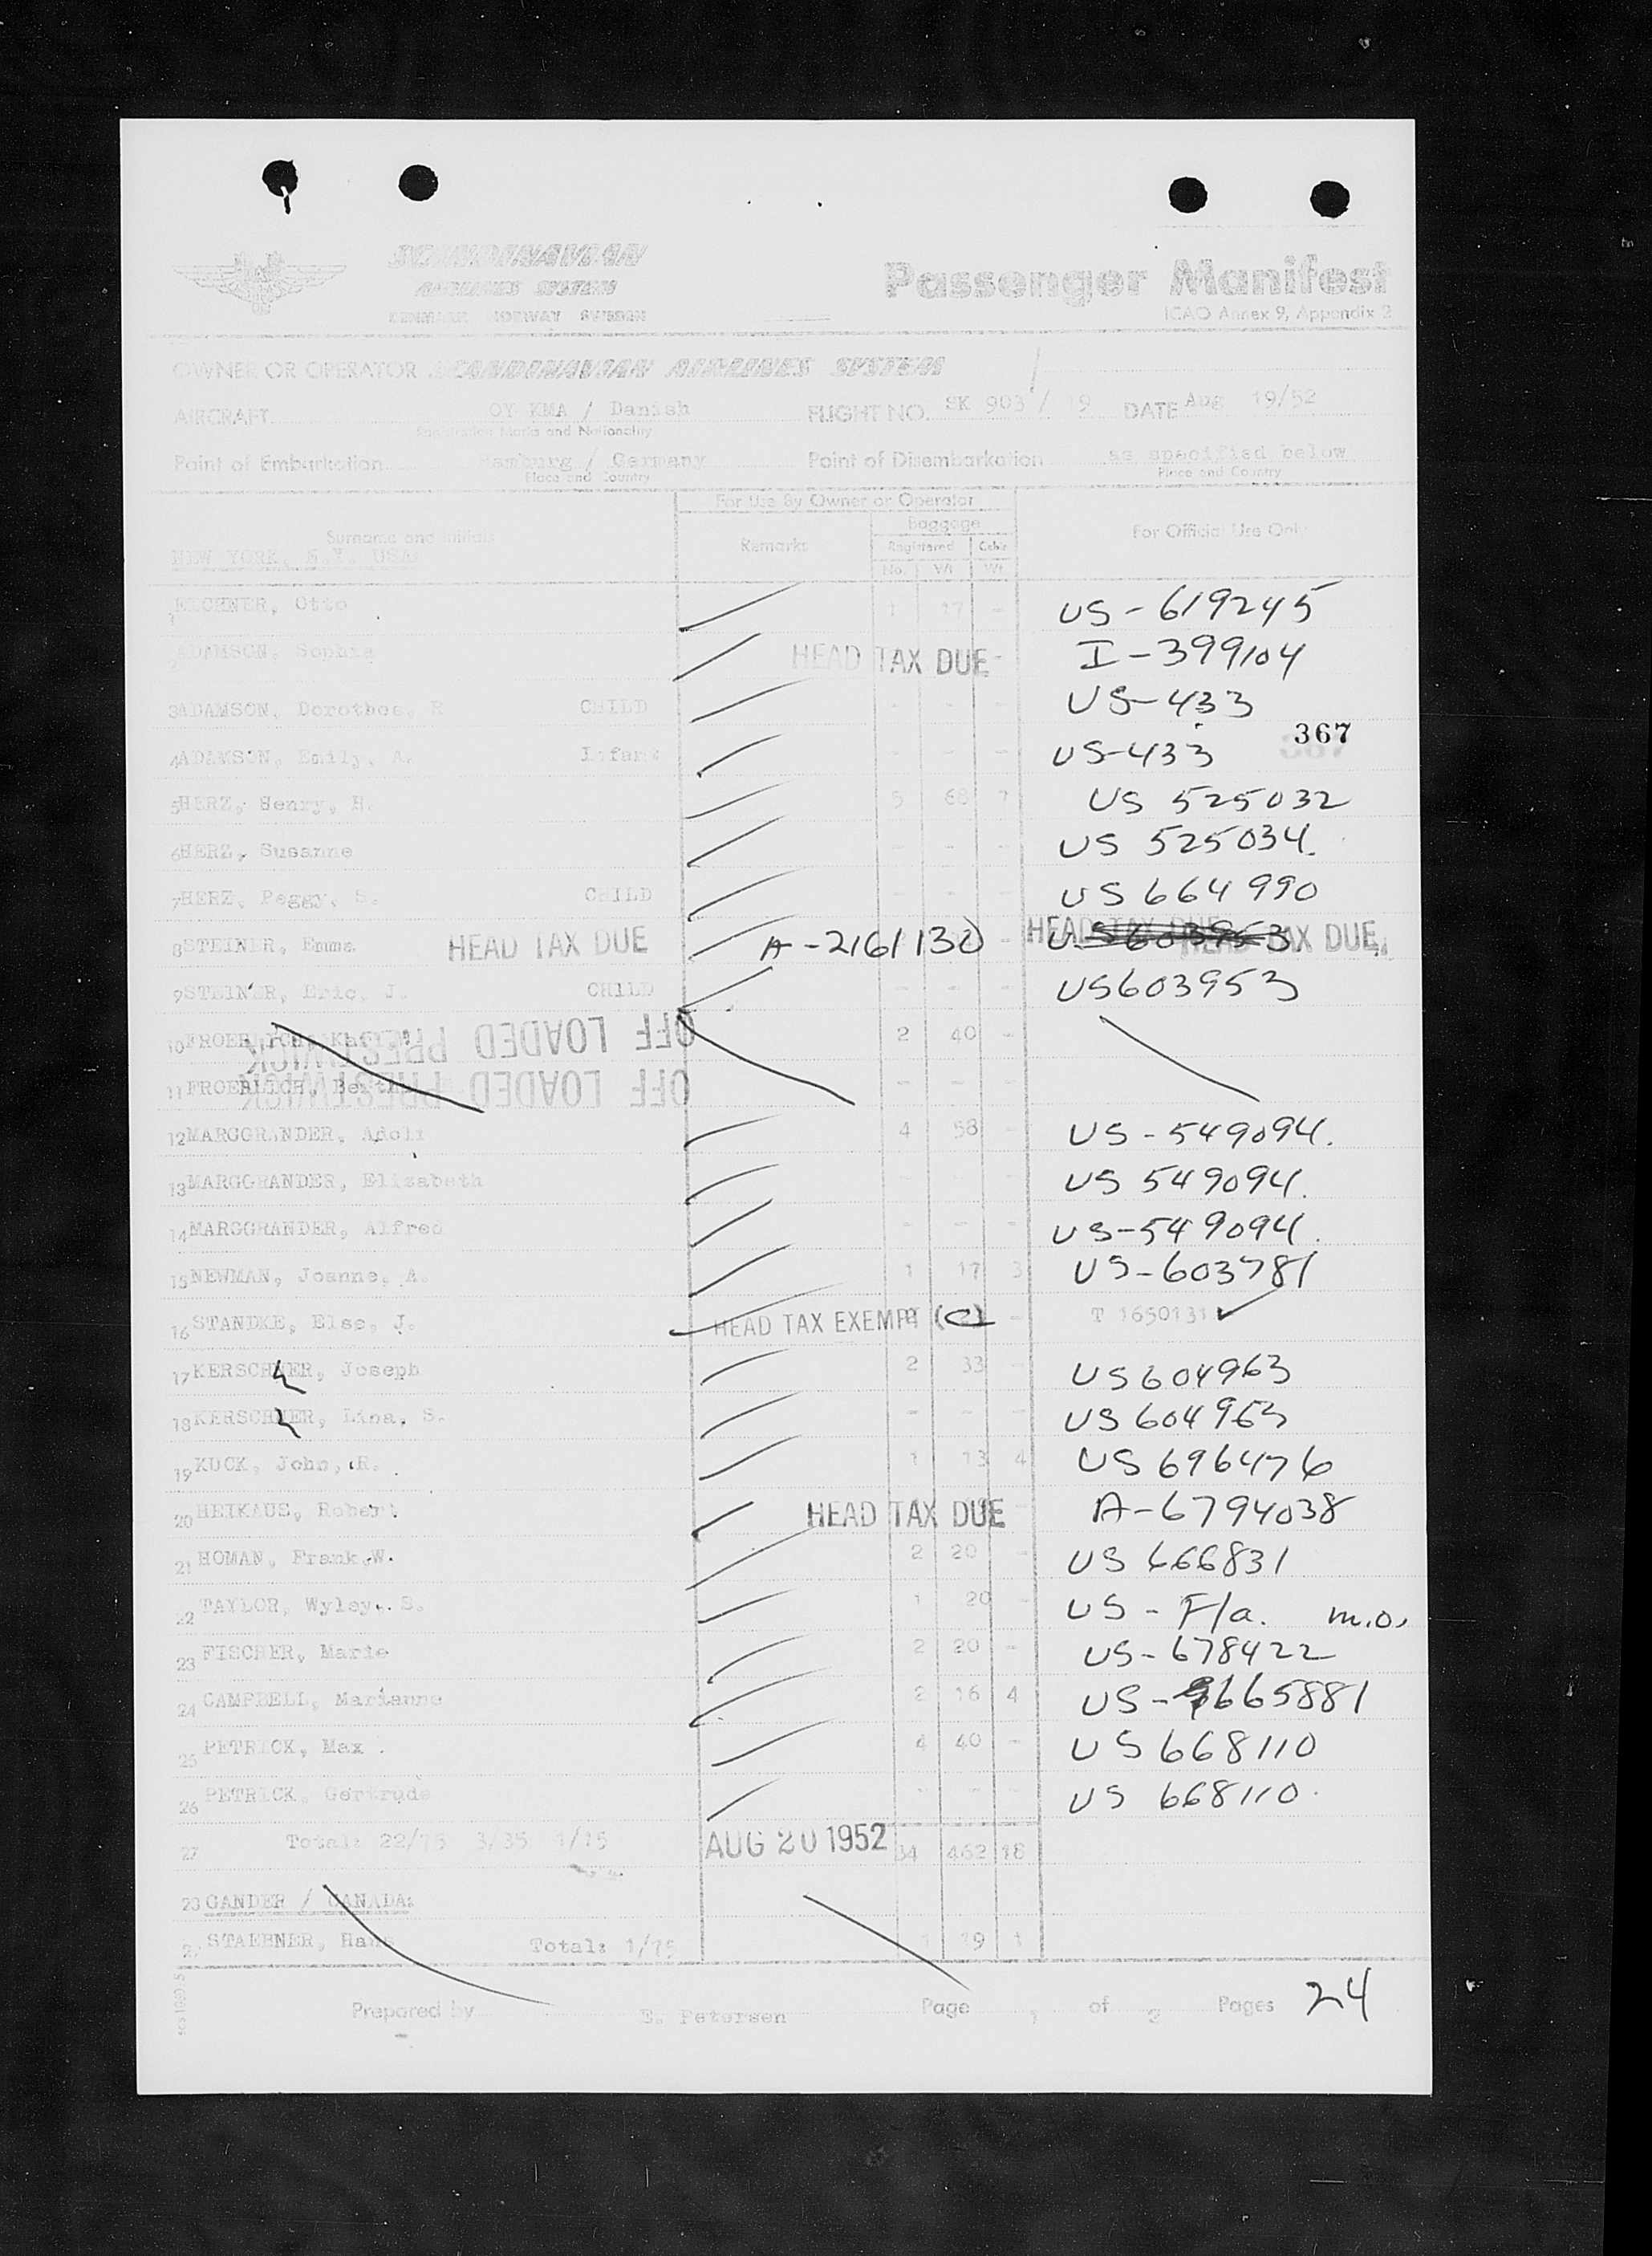 SCANDINAVIAN
AIRLINES SYSTEM
DENMARK NORWAY SWEDEN
Passenger Manifest
ICAO Annex 9, Appendix 2
OWNER OR OPERATOR SCANDINAVIAN AIRLINES SYSTEM
AIRCRAFT OY KMA / Danish FLIGHT NO. SK 903 / 19 DATE Aug 19/52
Registration Marks and Nationality
Point of Embarkation Hamburg / Germany Point of Disembarkation as specified below
Place and Country Place and Country
For Use By Owner or Operator
Surname and initials Remarks Baggage For Official Use Only
Registered Cabin
NEW YORK, N.Y. USA:
No. Wt Wt
1 Otto 1 17 - US-619245
2 ADAMSON, Sophie HEAD TAX DUE - I-399104
3 ADAMSON, Dorothea, R CHILD - - - US-433
367
4 ADAMSON, Emily, A. Infant - - - US-433
5 HERZ, Henry, H. 5 68 7 US 525032
6 HERZ, Susanne - - - US 525034.
7 HERZ, Peggy, S. CHILD - - - US 664990
8 STEINER, Emma HEAD TAX DUE A-2161130 HEAD TAX DUE US603953 HEAD TAX DUE
9 STEINER, Eric, J. CHILD - - - US603953
10 FROEHLICH, Karl 2 40 -
OFF LOADED PRESTWICK
11 FROEHLICH, - - -
OFF LOADED PRESTWICK
12 MARGGRANDER, Adolf 4 58 - US-549094.
13 MARGGRANDER, Elizabeth - - - US 549094.
14 MARGGRANDER, Alfred - - - US-549094.
15 NEWMAN, Joanne, A. 1 17 3 US-603781
16 STANDKE, Else, J. HEAD TAX EXEMPT (C) - T 1650131 ✓
17 KERSCHNER, Joseph 2 33 - US604963
18 KERSCHNER, Lina, S. - - - US 604963
19 KUCK, John, R. 1 13 4 US 696476
20 HEIKAUS, Robert HEAD TAX DUE A-6794038
21 HOMAN, Frank, W. 2 20 - US 666831
22 TAYLOR, Wyley, S. 1 20 - US - F/a. m.o.
23 FISCHER, Marie 2 20 - US-678422
24 CAMPBELL, Marianne 2 16 4 US-665881
25 PETRICK, Max 4 40 - US 668110
26 PETRICK, Gertrude - - - US 668110.
27 Total: 22/75 3/35 1/15 AUG 20 1952 34 462 18
28 GANDER / CANADA:
29 STAEBNER, Hans Total: 1/75 1 19 1
Prepared by E. Petersen Page 1 of 2 Pages 24